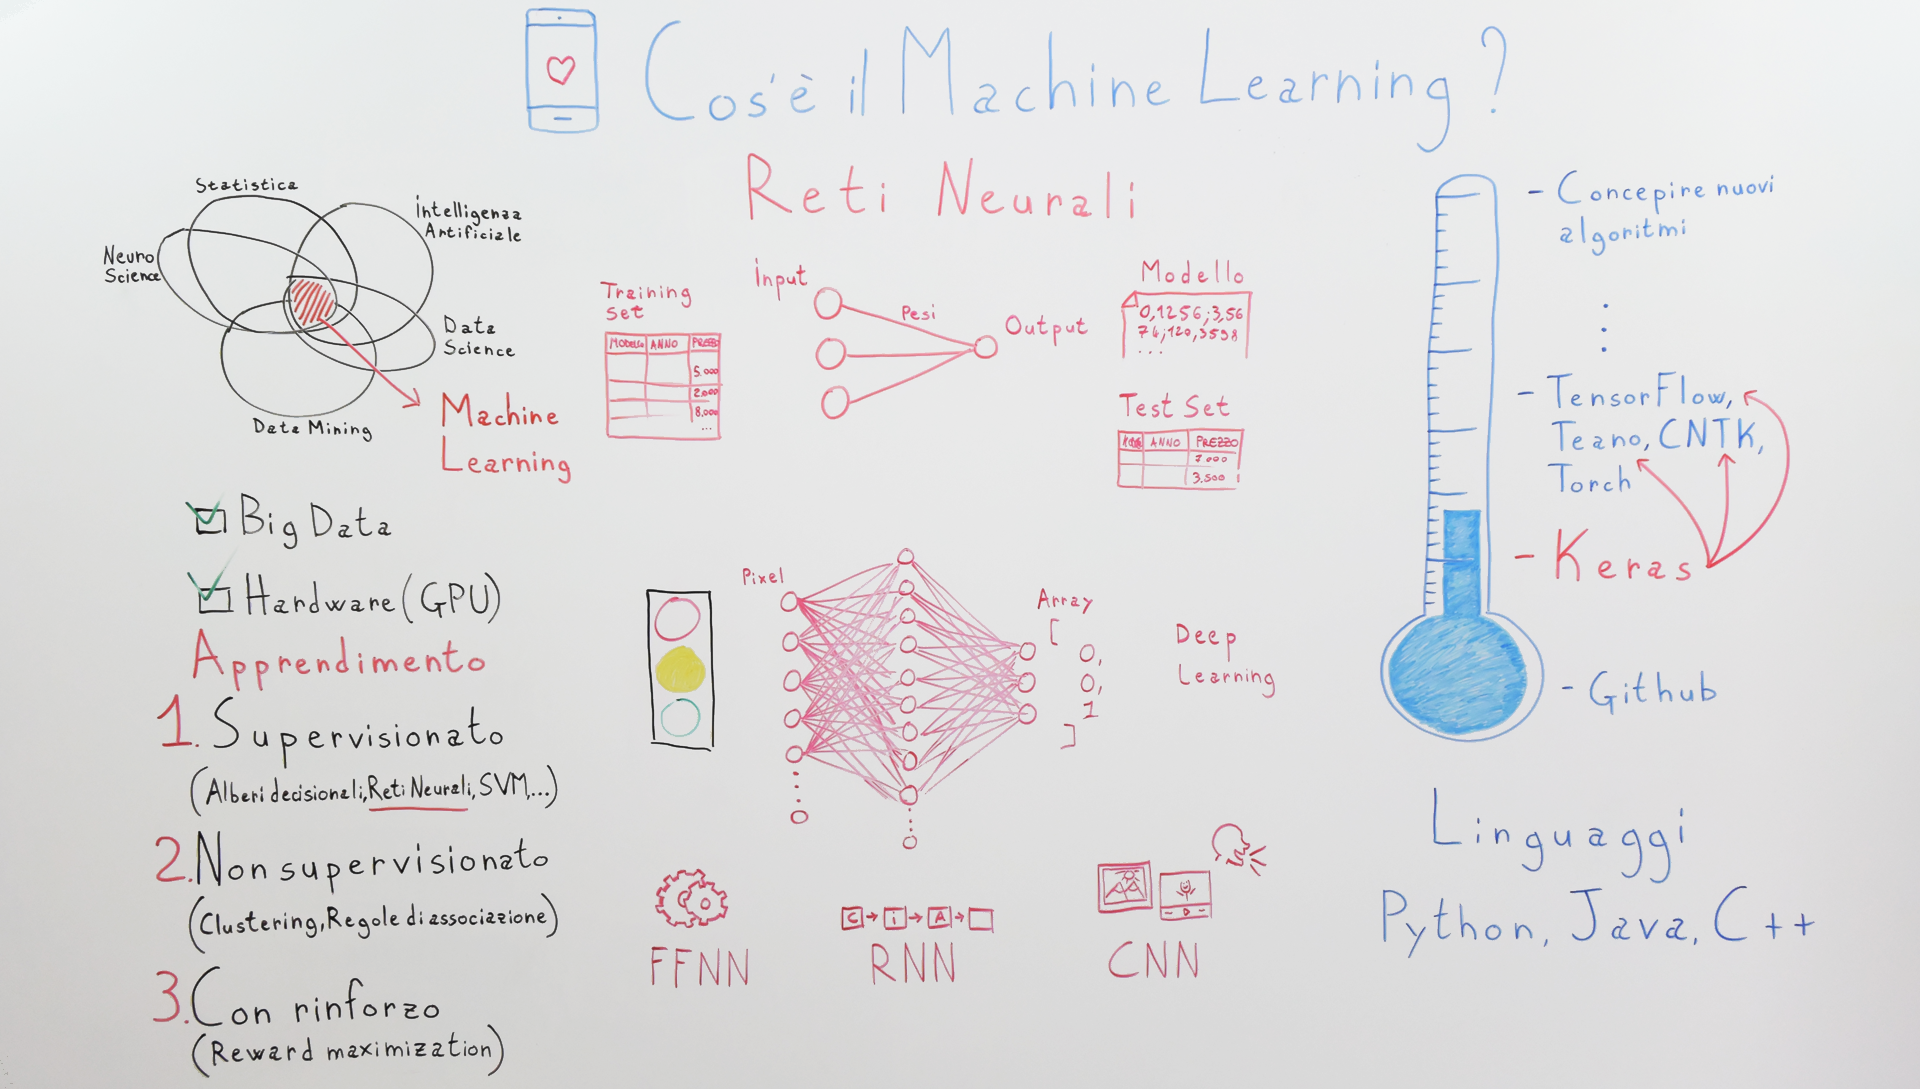 Cos'è il Machine Learning?
Statistica
Intelligenza
Artificiale
Neuro
Science
Data
Science
Data Mining
Machine
Learning
Big Data
Hardware (GPU)
Apprendimento
1. Supervisionato
(Alberi decisionali, Reti Neurali, SVM,...)
2. Non supervisionato
(Clustering, Regole di associazione)
3. Con rinforzo
(Reward maximization)
Reti Neurali
Training
set
MODELLO ANNO PREZZO
5.000
2.000
8.000
...
Input
Pesi
Output
Modello
0,1256;3,56
...
Test Set
ANNO PREZZO
7.000
3.500
Pixel
Array
[
0,
0,
1
]
Deep
Learning
C → i → A →
FFNN
RNN
CNN
- Concepire nuovi
algoritmi
- TensorFlow,
Teano, CNTK,
Torch
- Keras
- Github
Linguaggi
Python, Java, C++